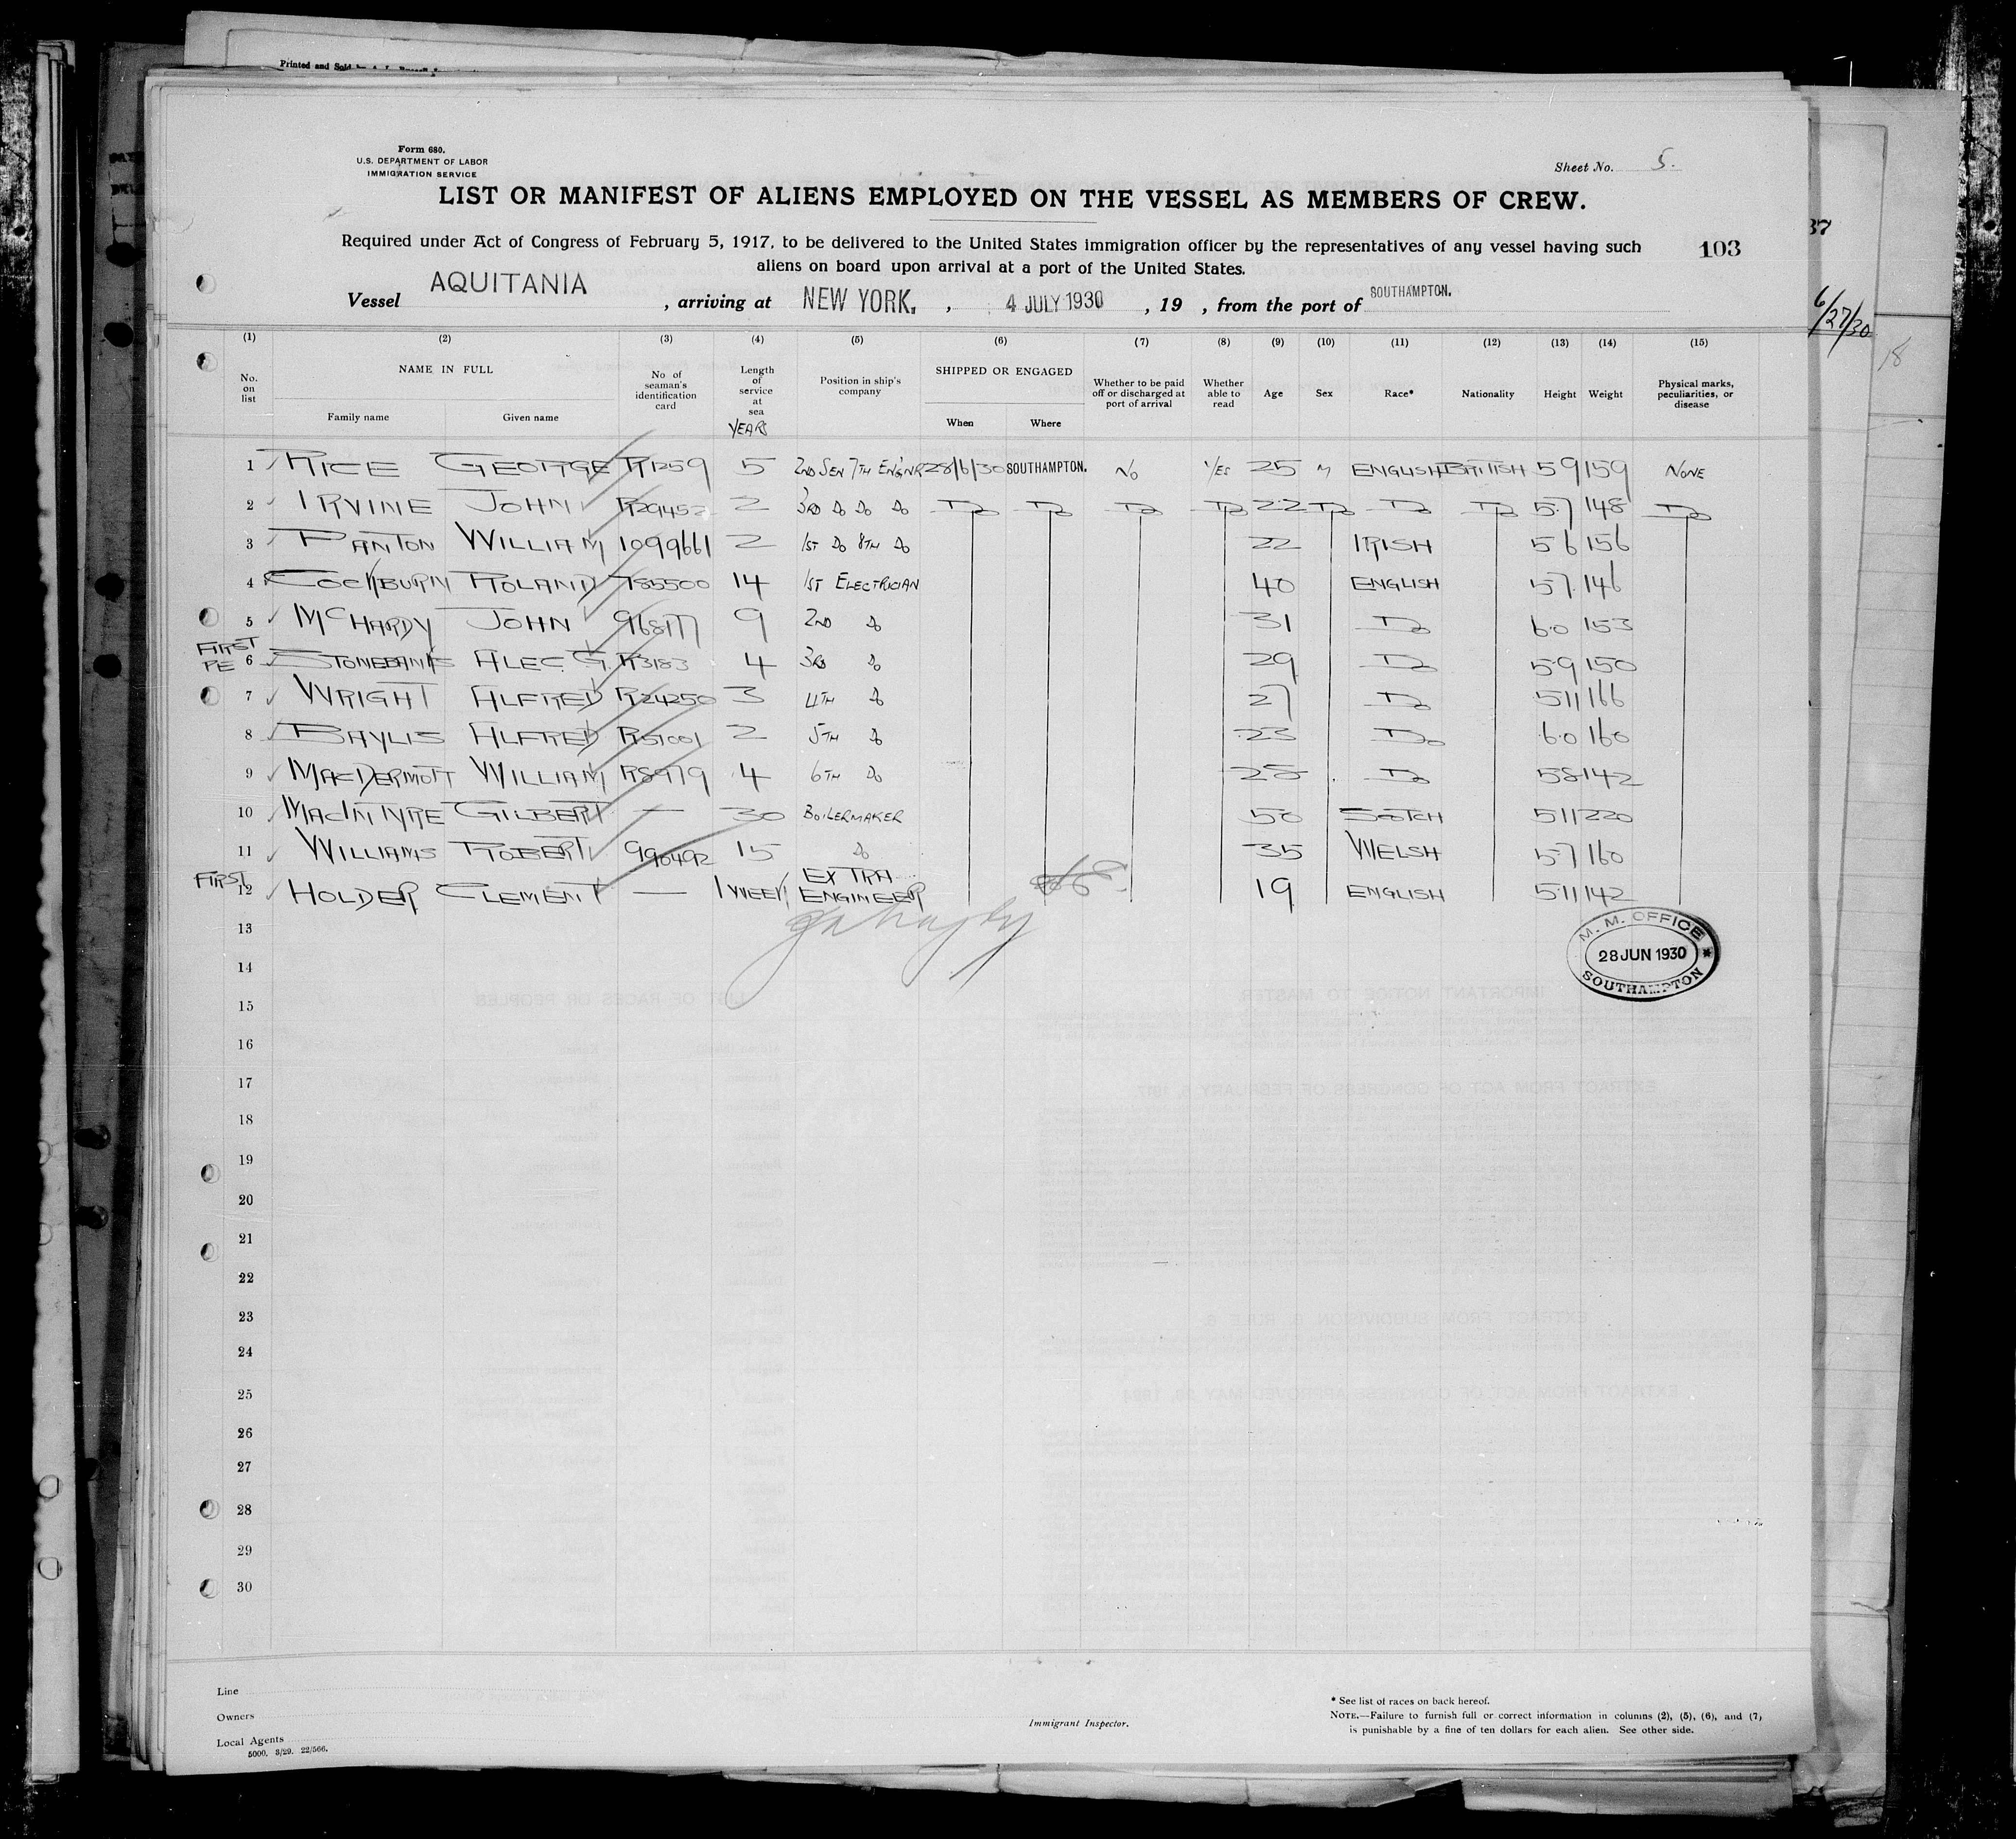 Printed and Sold
Form 680.
U.S. DEPARTMENT OF LABOR
IMMIGRATION SERVICE
Sheet No. 5.
LIST OR MANIFEST OF ALIENS EMPLOYED ON THE VESSEL AS MEMBERS OF CREW.
Required under Act of Congress of February 5, 1917, to be delivered to the United States immigration officer by the representatives of any vessel having such
aliens on board upon arrival at a port of the United States.
103
37
6/27/30
18
Vessel AQUITANIA , arriving at NEW YORK. , 4 JULY 1930 , 19 , from the port of SOUTHAMPTON.
(1) (2) (3) (4) (5) (6) (7) (8) (9) (10) (11) (12) (13) (14) (15)
No. on list NAME IN FULL Family name Given name No. of seaman's identification card Length of service at sea YEARS Position in ship's company SHIPPED OR ENGAGED When Where Whether to be paid off or discharged at port of arrival Whether able to read Age Sex Race* Nationality Height Weight Physical marks, peculiarities, or disease
1 RICE GEORGE R1259 5 2ND SEN 7TH ENGNR 28/6/30 SOUTHAMPTON. No YES 25 M ENGLISH BRITISH 5 9 159 NONE
2 IRVINE JOHN R29452 2 3RD Do Do Do Do Do Do Do 22 Do Do Do 5.7 148 Do
3 PANTON WILLIAM 1099661 2 1ST Do 8TH Do 22 IRISH 5 6 156
4 COCKBURN ROLAND 785500 14 1ST ELECTRICIAN 40 ENGLISH 5 7 146
5 McHARDY JOHN 968177 9 2ND Do 31 Do 6.0 153
FIRST
PE
6 STONEBANKS ALEC G. R3183 4 3RD Do 29 Do 5.9 150
7 WRIGHT ALFRED R24250 3 4TH Do 27 Do 5 11 166
8 BAYLIS ALFRED R51001 2 5TH Do 23 Do 6.0 160
9 MACDERMOTT WILLIAM R8979 4 6TH Do 25 Do 5 8 142
10 MACINTYRE GILBERT — 30 BOILERMAKER 50 SCOTCH 5 11 220
11 WILLIAMS ROBERT 990492 15 Do 35 WELSH 5.7 160
FIRST
12 HOLDER CLEMENT — 1 WEEK EXTRA ENGINEER 19 ENGLISH 5.11 142
13
14
15
16
17
18
19
20
21
22
23
24
25
26
27
28
29
30
M. M. OFFICE
28 JUN 1930
SOUTHAMPTON
Line
Owners
Local Agents
5000. 3/29. 22/566.
Immigrant Inspector.
* See list of races on back hereof.
NOTE.—Failure to furnish full or correct information in columns (2), (5), (6), and (7)
is punishable by a fine of ten dollars for each alien. See other side.